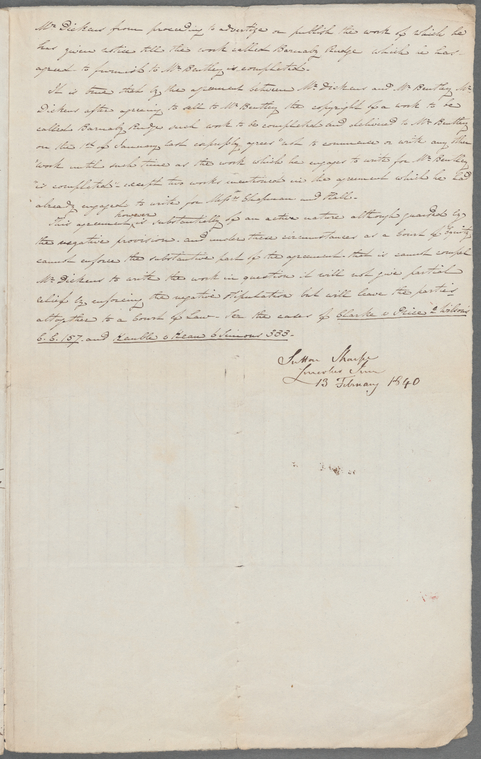 Mr. Dickens from proceeding to advertize or publish the work of which he
has given notice till the work called Barnaby Rudge which he has
agreed to furnish to Mr Bentley is completed.
It is true that by the agreement between Mr. Dickens and Mr Bentley Mr.
Dickens after agreeing to sell to Mr Bentley the copyright of a work to be
called Barnaby Rudge such work to be completed and delivered to Mr Bentley
on the 1st of January last expressly agrees not to commence or write any other
work until such time as the work which he engages to write for Mr. Bentley
is completed - except two works mentioned in the agreement which he had
already engaged to write for Messrs. Chapman and Hall.
This agreement however is substantially of an active nature although guarded by
the negative provision. and under these circumstances as a Court of Equity
cannot enforce the substantive part of the agreement - that is cannot compel
Mr Dickens to write the work in question it will not give partial
relief by enforcing the negative stipulation but will leave the parties
altogether to a Court of Law - See the cases of Clarke v Price 2 Wilson's
C. C. 157. and Kemble v Kean 6 Simons 333 -
Sutton Sharpe
Lincolns Inn
13 February 1840